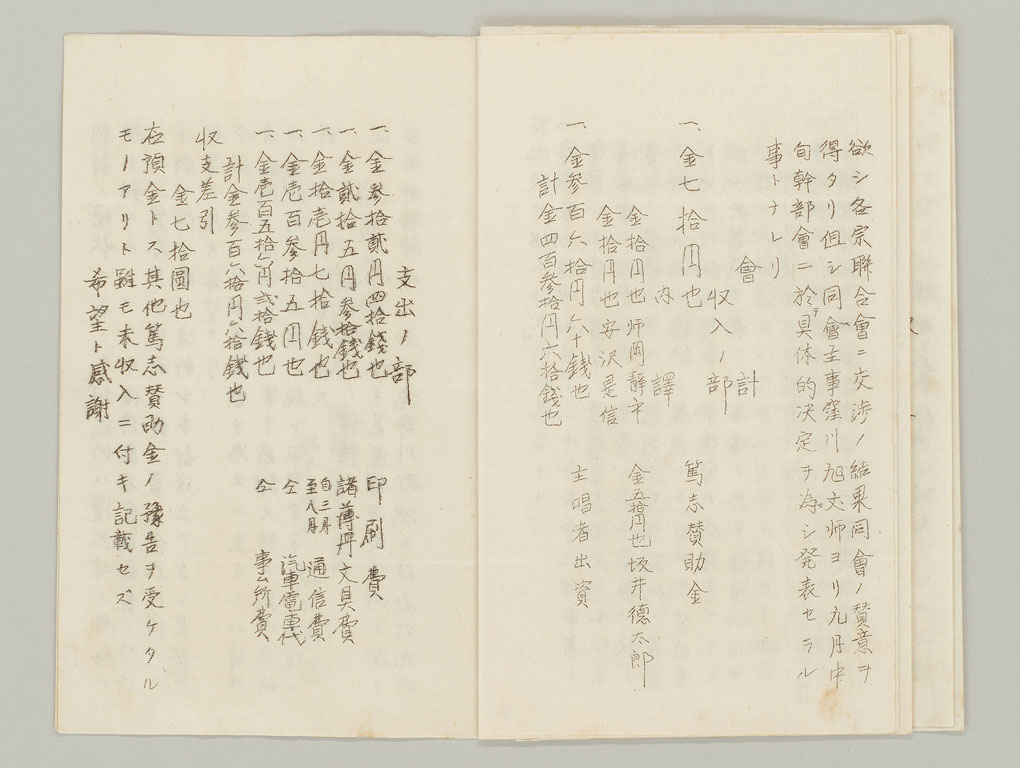 欲シ各宗聯合會ニ交渉ノ結果同會ノ賛意ヲ
得タリ但シ同會主事窪川旭丈师ヨリ九月中
旬幹部會ニ於テ具体的決定ヲ為シ発表セラル
事トナレリ
會計
収入ノ部
一、金七拾円也 篤志賛助金
内譯
金拾円也 师岡静市 金五拾円也 坂井德太郎
金拾円也 安沢是信
一、金参百六拾円六十錢也 主唱者出資
計金四百参拾円六拾錢也
支出ノ部
一、金参拾貳円四拾錢也 印刷費
一、金貳拾五円参拾錢也 諸薄册文具費
一、金拾壱円七拾錢也 自三月至八月 通信費
一、金壱百参拾五円也 仝 汽車電車代
一、金壱百五拾六円弐拾錢也 仝 事ム所費
計金参百六拾円六拾錢也
収支差引
金七拾圓也
在預金トス其他篤志賛助金ノ豫告ヲ受ケタル
モノアリト雖モ未収入ニ付キ記載セズ
希望ト感謝